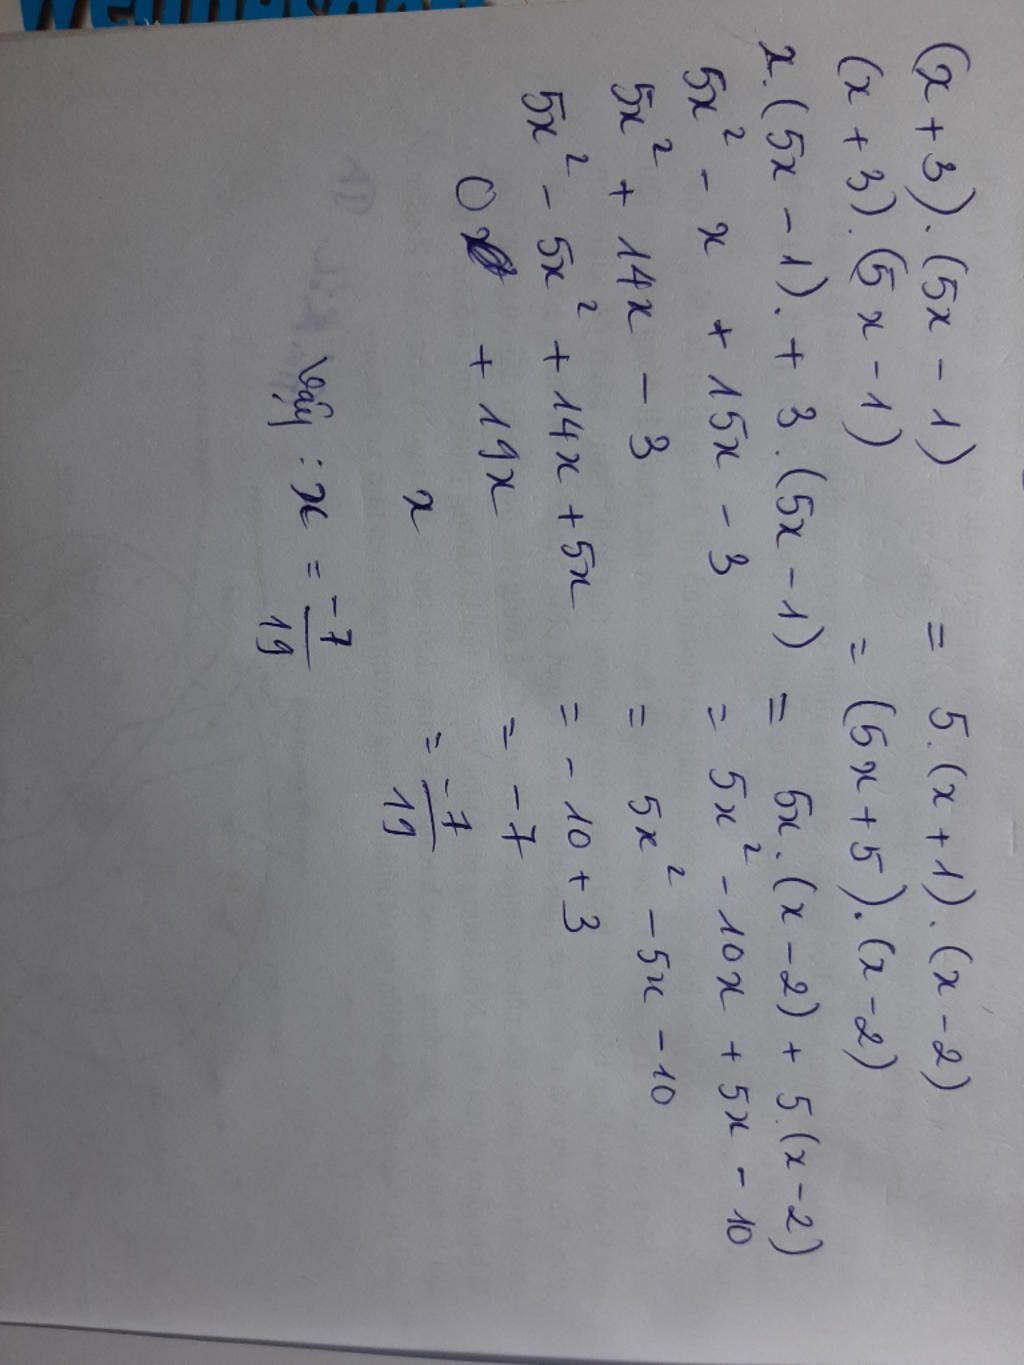 (x+3).(5x-1) = 5.(x+1).(x-2)
(x+3).(5x-1) = (5x+5).(x-2)
x.(5x-1).+3.(5x-1) = 5x.(x-2)+5.(x-2)
5x² - x + 15x - 3 = 5x² - 10x + 5x - 10
5x² + 14x - 3 = 5x² - 5x - 10
5x² - 5x² + 14x + 5x = - 10 + 3
0 + 19x = -7
x = -7/19
Vậy : x = -7/19